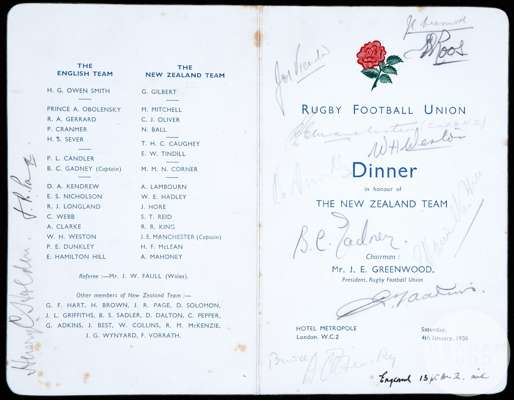 THE
ENGLISH TEAM
H. G. OWEN SMITH
PRINCE A. OBOLENSKY
R. A. GERRARD
P. CRANMER
H. S. SEVER
P. L. CANDLER
B. C. GADNEY (Captain)
D. A. KENDREW
E. S. NICHOLSON
R. J. LONGLAND
C. WEBB
A. CLARKE
W. H. WESTON
P. E. DUNKLEY
E. HAMILTON HILL
THE
NEW ZEALAND TEAM
G. GILBERT
M. MITCHELL
C. J. OLIVER
N. BALL
T. H. C. CAUGHEY
E. W. TINDILL
M. M. N. CORNER
A. LAMBOURN
W. E. HADLEY
J. HORE
S. T. REID
R. R. KING
J. E. MANCHESTER (Captain)
H. F. McLEAN
A. MAHONEY
Referee :—Mr. J. W. FAULL (Wales).
Other members of New Zealand Team :—
G. F. HART, H. BROWN, J. R. PAGE, D. SOLOMON,
J. L. GRIFFITHS, B. S. SADLER, D. DALTON, C. PEPPER,
G. ADKINS, J. BEST, W. COLLINS, R. M. McKENZIE,
J. G. WYNYARD, F. VORRATH.
RUGBY FOOTBALL UNION
W H Weston
Dinner
in honour of
THE NEW ZEALAND TEAM
B. C. Gadney.
Chairman :
Mr. J. E. GREENWOOD,
President, Rugby Football Union
HOTEL METROPOLE
London, W.C.2
Saturday,
4th January, 1936
England 13 pts N.Z. nil